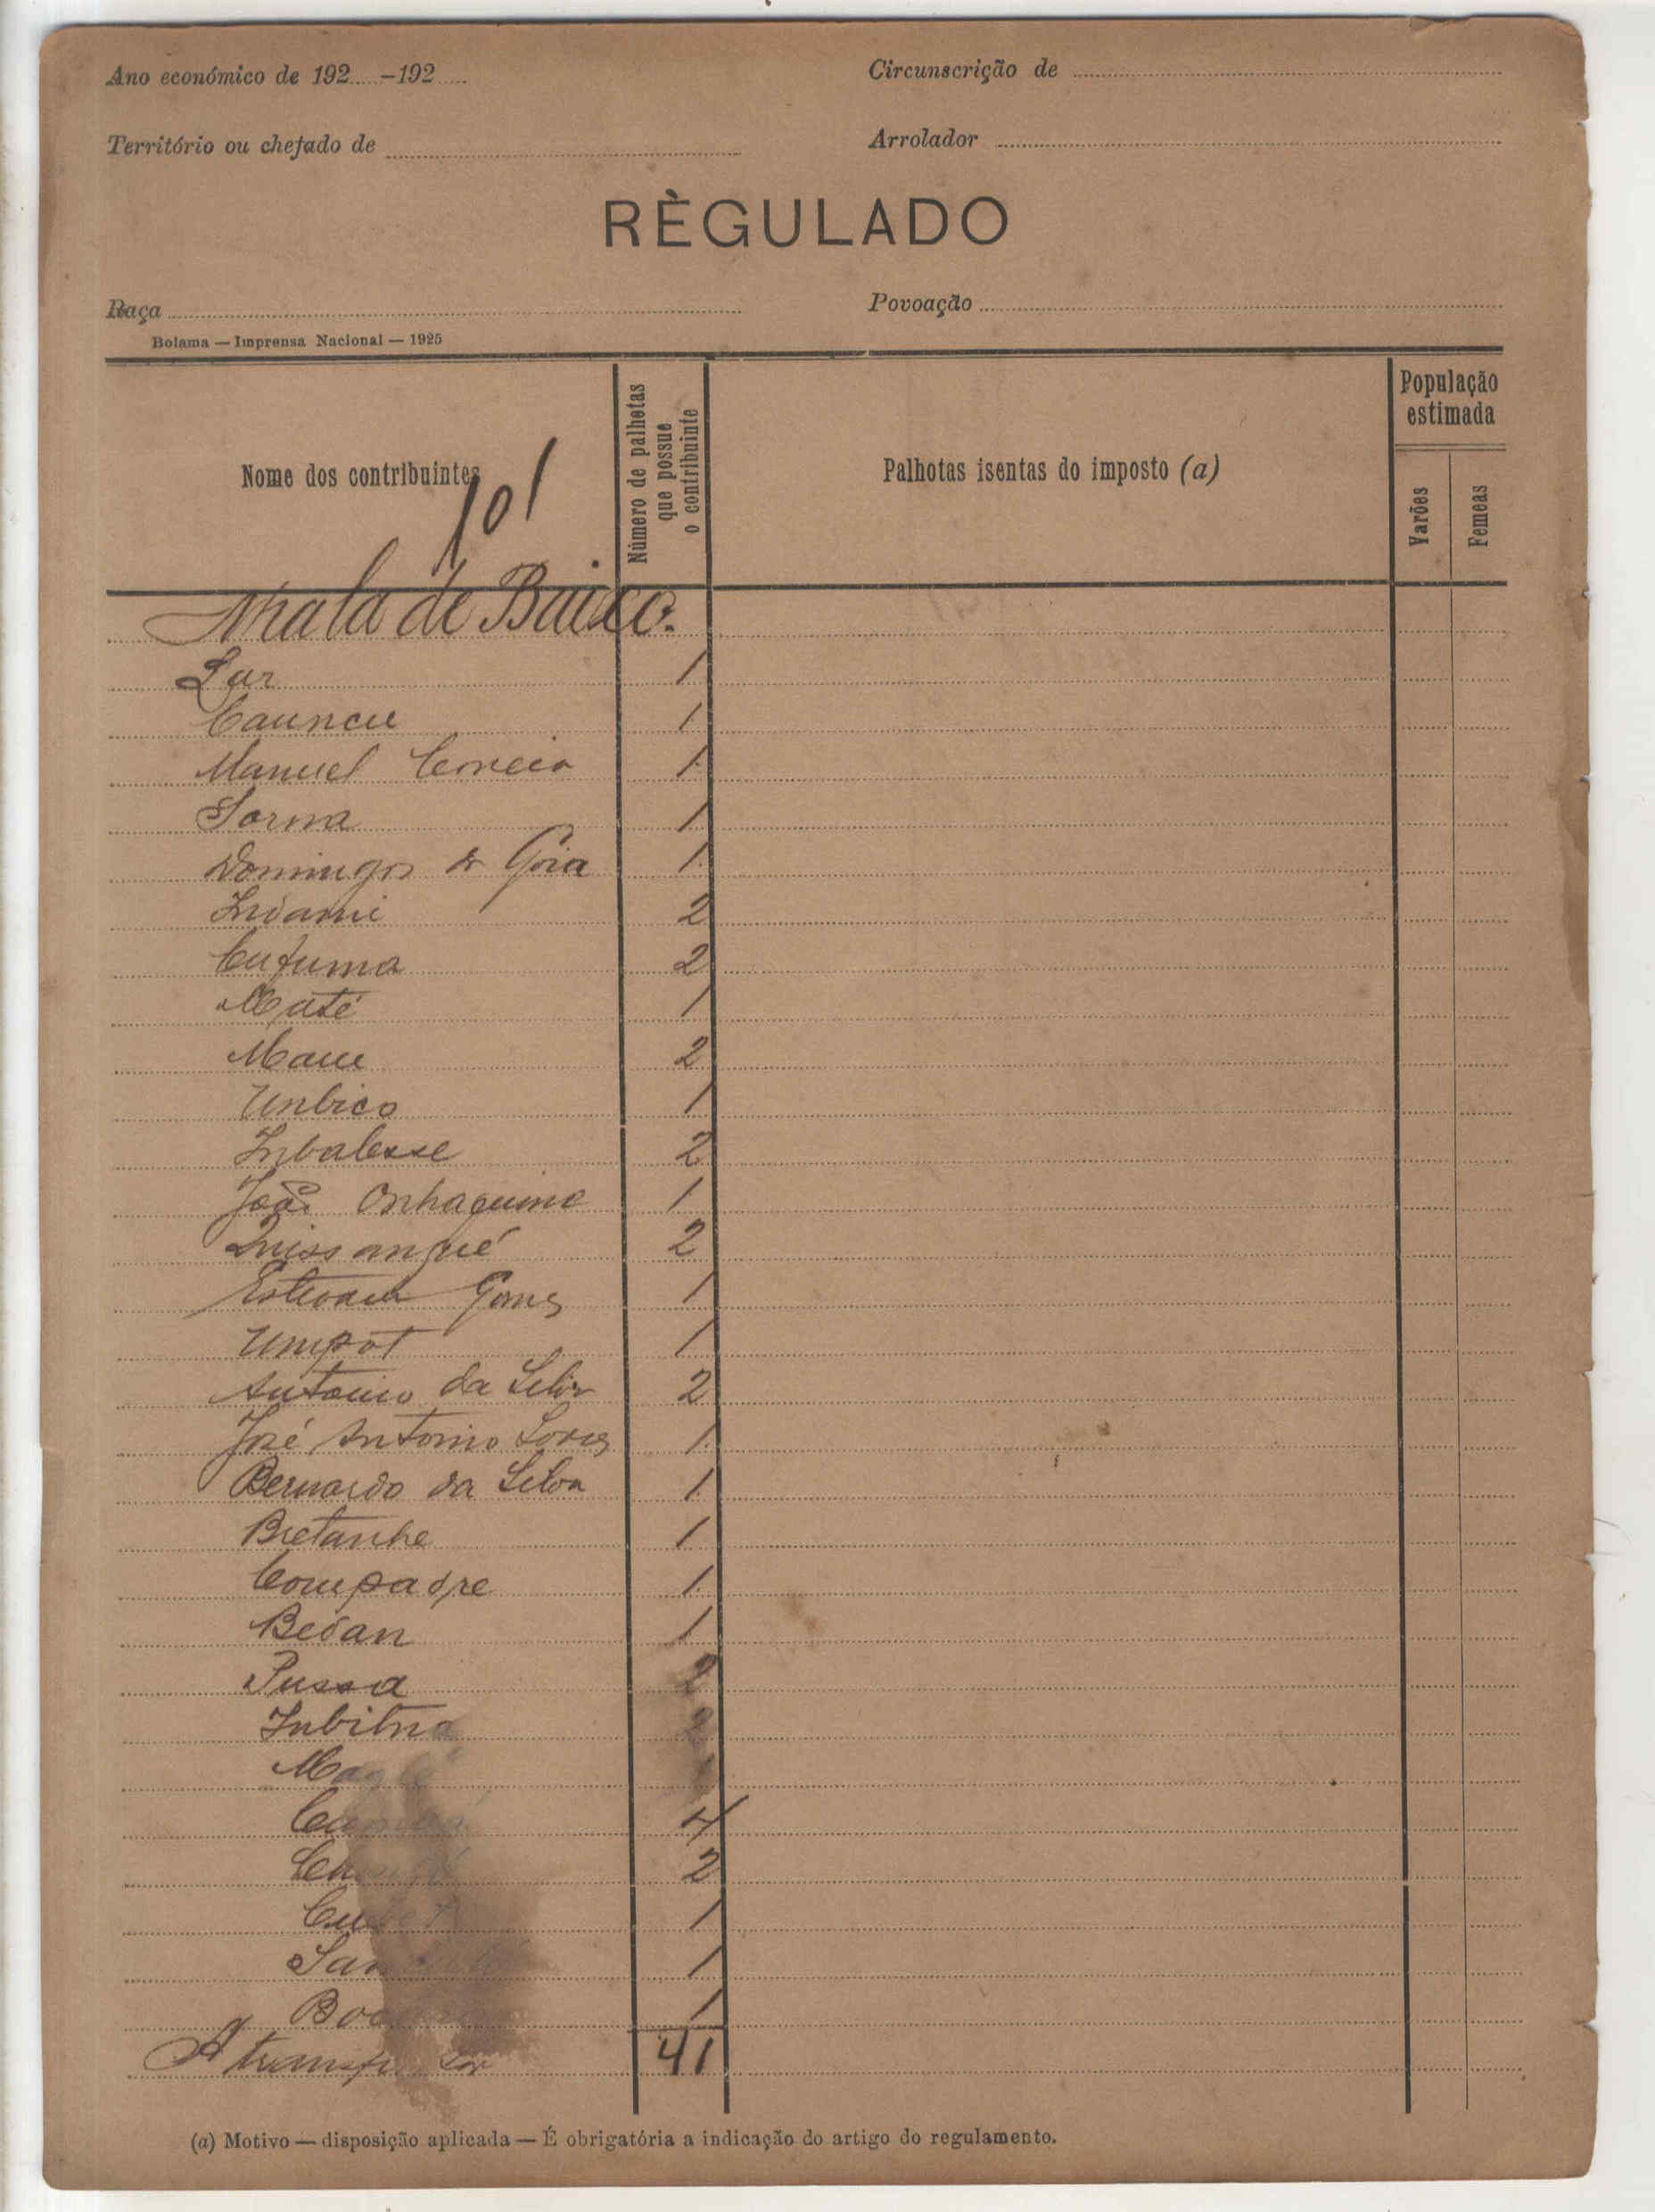 Ano económico de 192.....-192.....
Circunscrição de
Território ou chefado de
Arrolador
RÈGULADO
Raça
Povoação
Bolama — Imprensa Nacional — 1925
Nome dos contribuintes
Número de palhotas que possue o contribuinte
Palhotas isentas do imposto (a)
População estimada
Varões
Femeas
101
Mata de Baixo.
Lar 1
Cauncu 1
Manuel Correia 1
Sorna 1
Domingos 1
Indami 2
Cufuma 2
Maté 1
Maue 2
Unbico 1
Inbalesse 2
João 1
2
Estevam Gomes 1
Umpot 1
Antonio da Silva 2
José Antonio Lopes 1
Bernardo da Silva 1
Bretanhe 1
Compadre 1
Bedan 1
Pussa 2
Inbitna 2
1
4
2
1
1
1
A transportar 41
(a) Motivo — disposição aplicada — É obrigatória a indicação do artigo do regulamento.